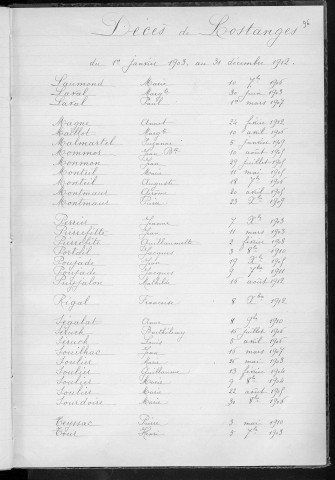 96
Décès de Lostanges
du 1er janvier 1903 au 31 décembre 1912.
Laumond Marie 10 7bre 1906
Laval Marg.te 30 juin 1903
Laval Paul 1er mars 1907
Magne Annet 24 février 1912
Maillot Marg.te 10 août 1906
Malmartel Suzanne 5 janvier 1909
Jean Bte 10 août 1909
Monmon Jean 29 juillet 1905
Montiel Marie 11 mai 1905
Montiel Auguste 18 7bre 1906
Montmaur 20 avril 1905
Montmaur 23 Xbre 1909
Perrier 7 Xbre 1903
Pierrefitte Jean 11 mars 1903
Pierrefitte Guillaumette 2 février 1908
Jacques 3 8bre 1910
Poujade Jean 19 Xbre 1905
Poujade Jacques 9 7bre 1911
Puyjalon Mathilde 16 août 1912
Rigal 8 Xbre 1912
Ségalat Anne 8 9bre 1910
Seruch Barthélemy 15 juillet 1906
Seruch Louis 5 avril 1906
Souilhac Jean 16 mars 1907
Soulier Marie 26 mai 1903
Soulier Guillaume 13 février 1904
Soulier Marie 9 8bre 1904
Soulier Marie 22 août 1905
Sourdoire Marie 30 8bre 1905
Teyssac Pierre 3 mai 1910
5 7bre 1903